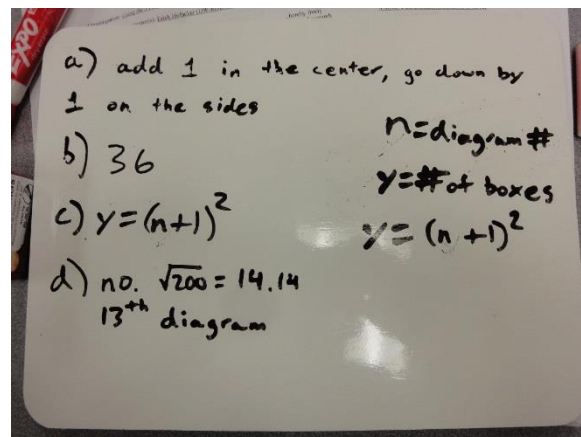 a) add 1 in the center, go down by
1 on the sides
b) 36
c) y=(n+1)²
d) no. √200 = 14.14
13th diagram
n=diagram #
y=# of boxes
y= (n+1)²